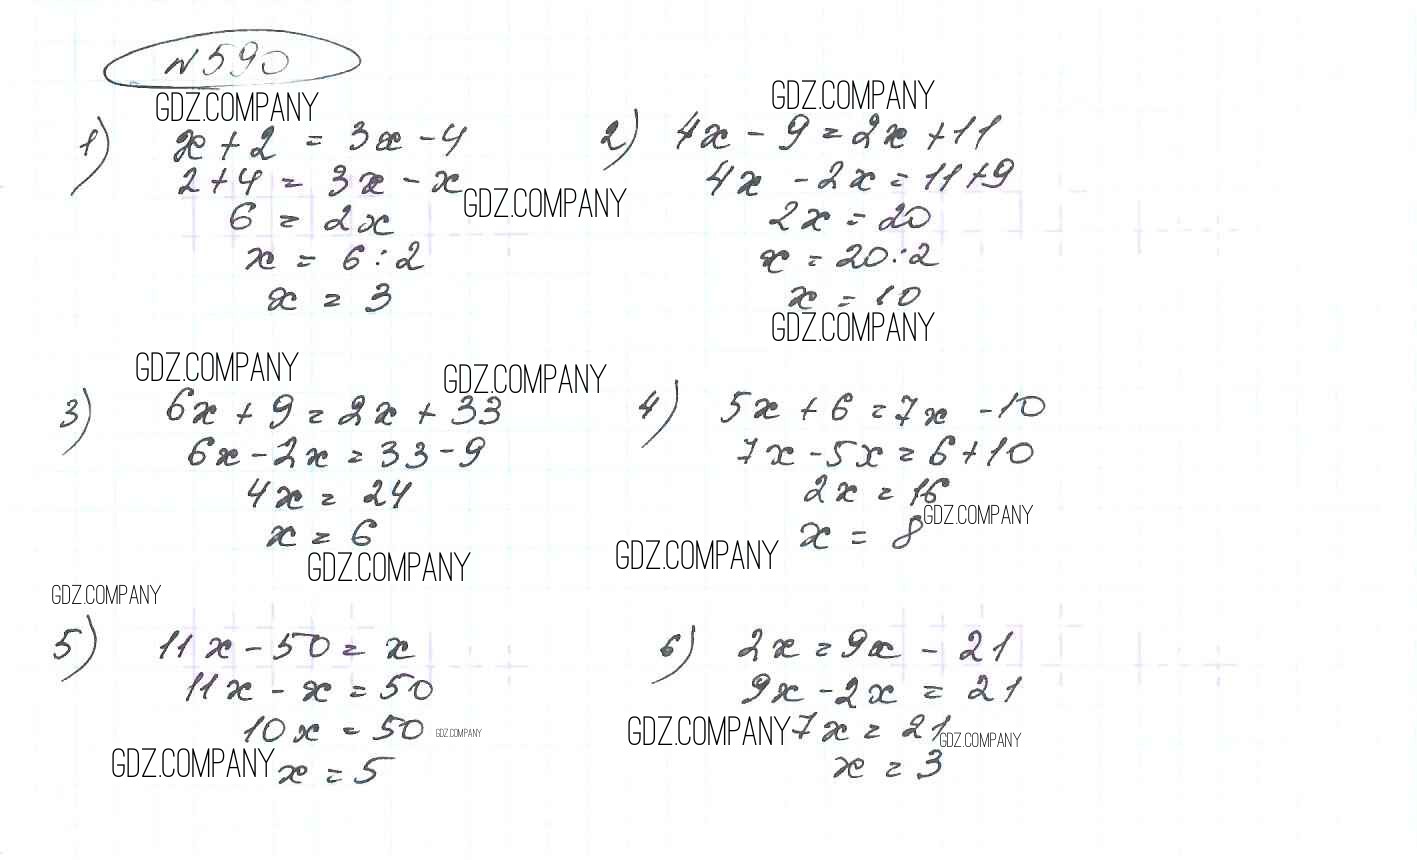 №590
GDZ.COMPANY
GDZ.COMPANY
1) x + 2 = 3x - 4
2 + 4 = 3x - x
GDZ.COMPANY
6 = 2x
x = 6 : 2
x = 3
2) 4x - 9 = 2x + 11
4x - 2x = 11 + 9
2x = 20
x = 20 : 2
x = 10
GDZ.COMPANY
GDZ.COMPANY
GDZ.COMPANY
3) 6x + 9 = 2x + 33
6x - 2x = 33 - 9
4x = 24
x = 6
GDZ.COMPANY
4) 5x + 6 = 7x - 10
7x - 5x = 6 + 10
2x = 16
GDZ.COMPANY
x = 8
GDZ.COMPANY
GDZ.COMPANY
5) 11x - 50 = x
11x - x = 50
10x = 50
GDZ.COMPANY
GDZ.COMPANY
x = 5
6) 2x = 9x - 21
9x - 2x = 21
GDZ.COMPANY
7x = 21
GDZ.COMPANY
x = 3